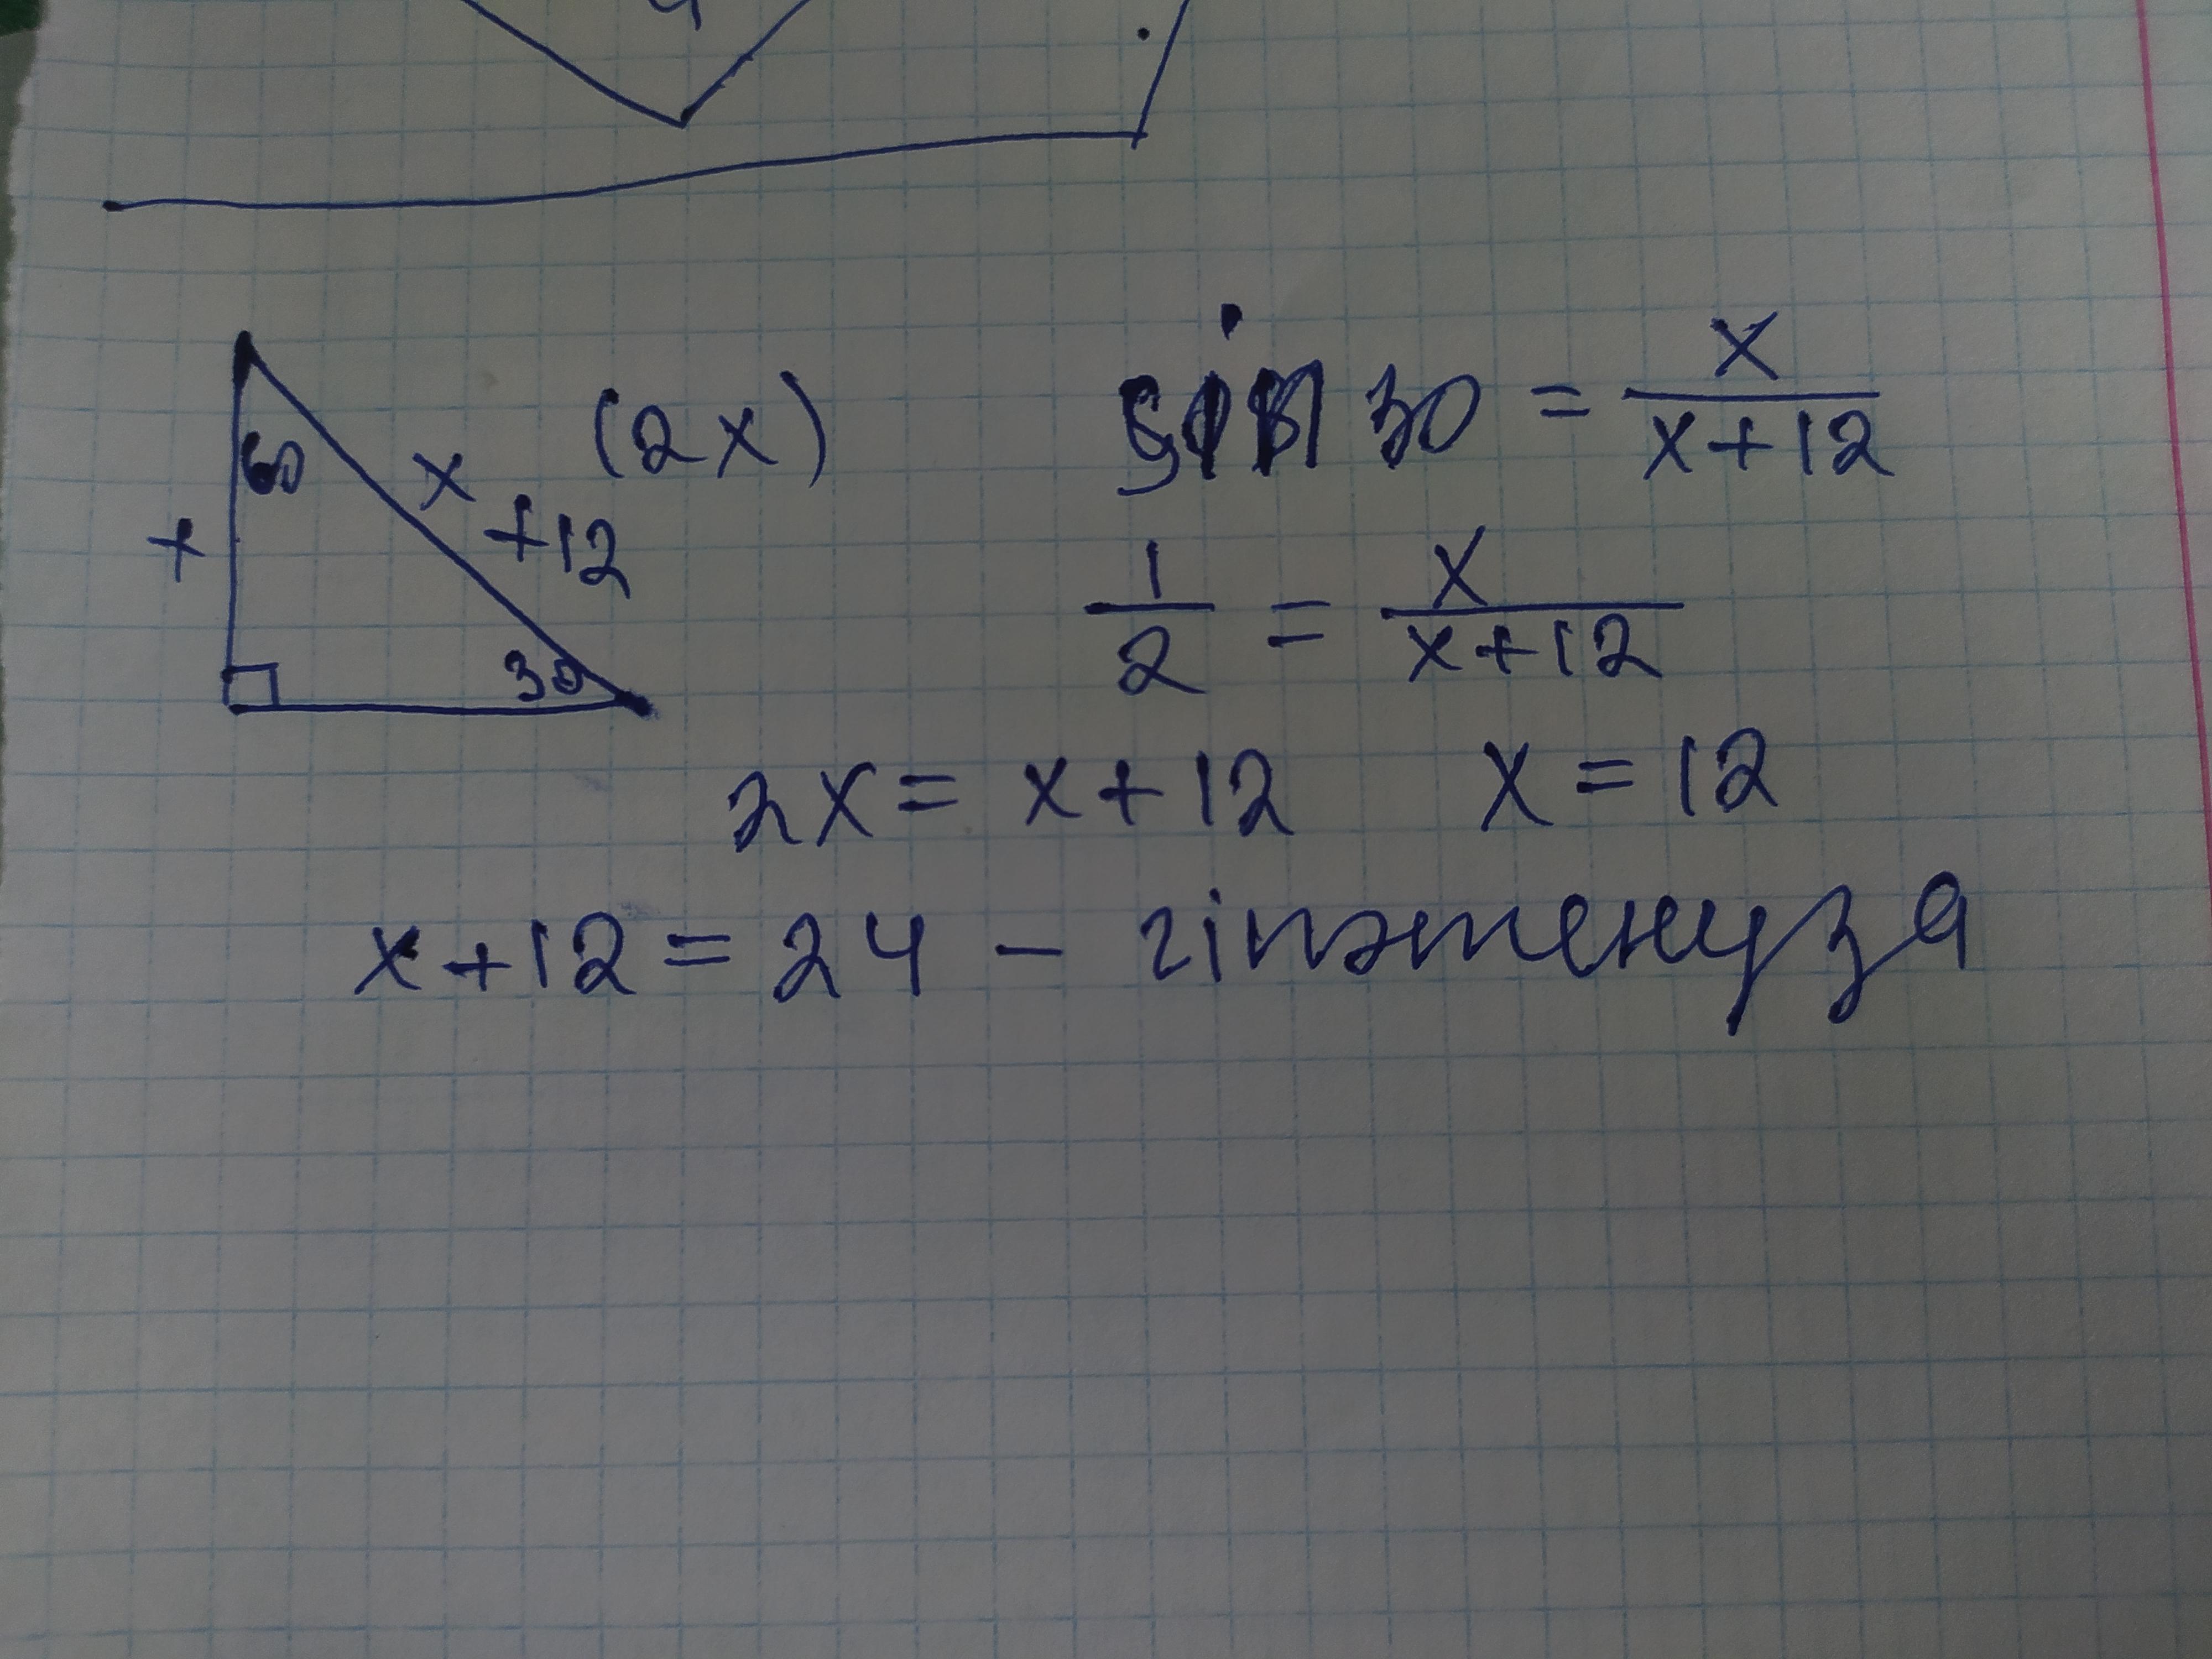 60
x
x
+12
(2x)
30
sin 30 = x/(x+12)
1/2 = x/(x+12)
2x = x+12 x = 12
x+12 = 24 – гіпотенуза